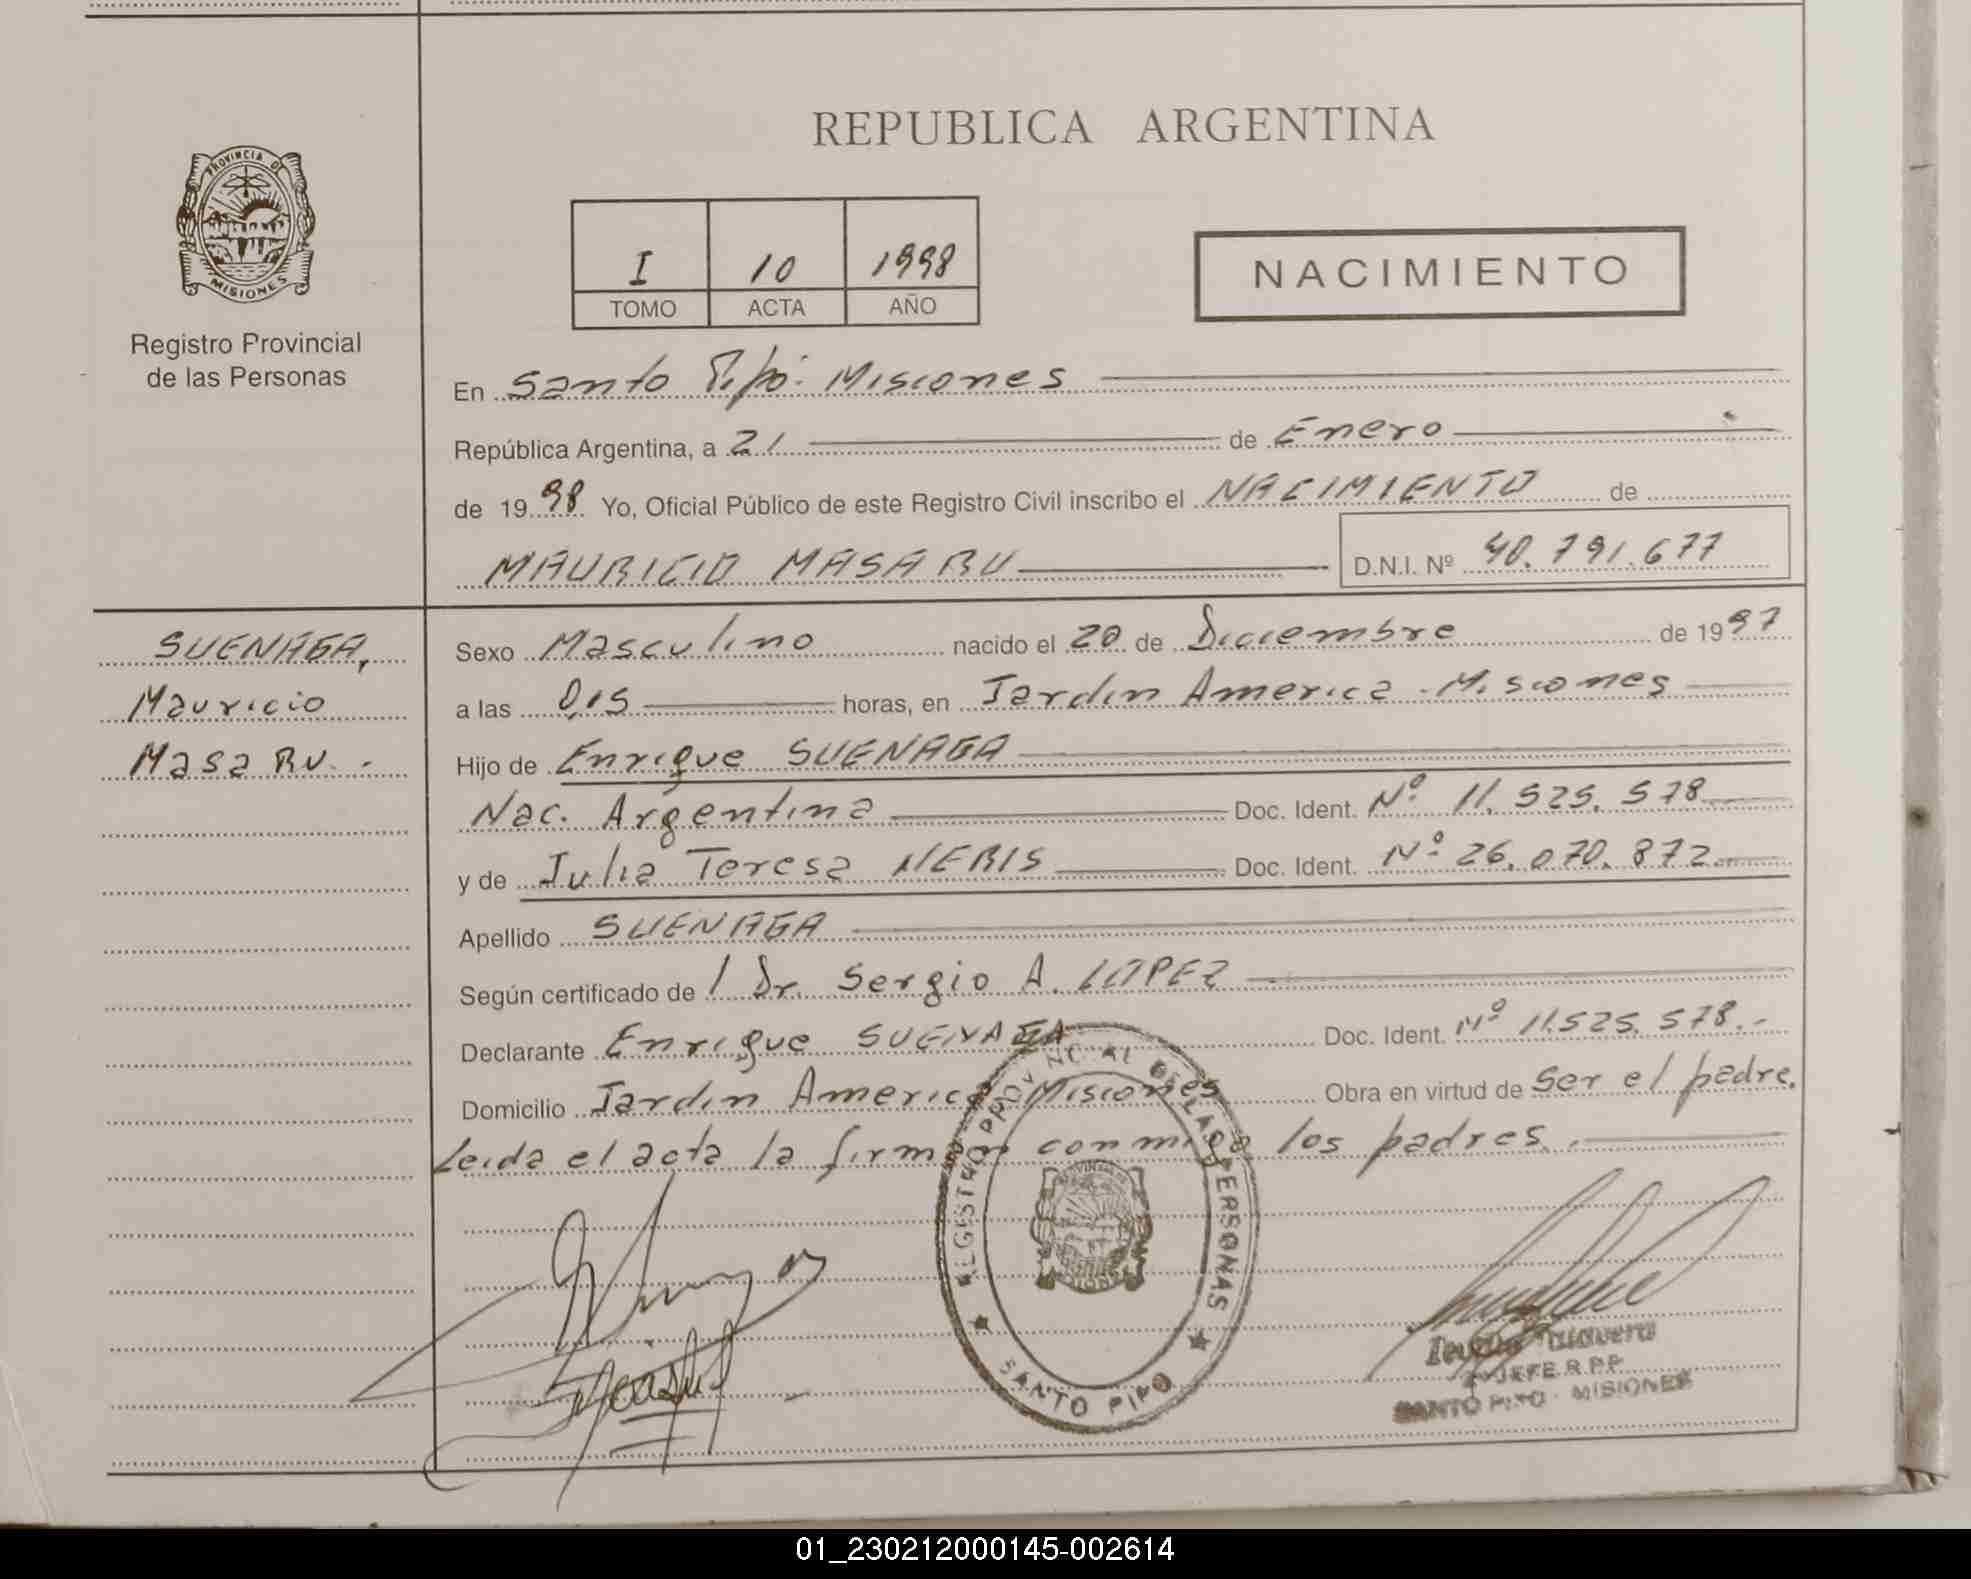 PROVINCIA DE
MISIONES
Registro Provincial
de las Personas
REPUBLICA ARGENTINA
I 10 1998
TOMO ACTA AÑO
NACIMIENTO
En Santo Pipó. Misiones
República Argentina, a 21 de Enero
de 1998 Yo, Oficial Público de este Registro Civil inscribo el NACIMIENTO de
MAURICIO MASARU D.N.I. Nº 40.791.677
SUENAGA,
Mauricio
MasaRU.-
Sexo Masculino nacido el 20 de Diciembre de 1997
a las 0,15 horas, en Jardin America - Misiones
Hijo de Enrique SUENAGA
Nac. Argentina Doc. Ident. Nº 11.525.578
y de Julia Teresa NERIS Doc. Ident. Nº 26.070.872
Apellido SUENAGA
Según certificado de / Dr. Sergio A. LOPEZ
Declarante Enrique SUENAGA Doc. Ident. Nº 11.525.578.-
Domicilio Jardin America Misiones Obra en virtud de ser el padre.
Leida el acta la firman conmigo los padres.
REGISTRO PROVINCIAL DE LAS PERSONAS
SANTO PIPO
PROVINCIA DE
MISIONES
Talavera
JEFE R.P.P.
SANTO PIPO - MISIONES
01_230212000145-002614